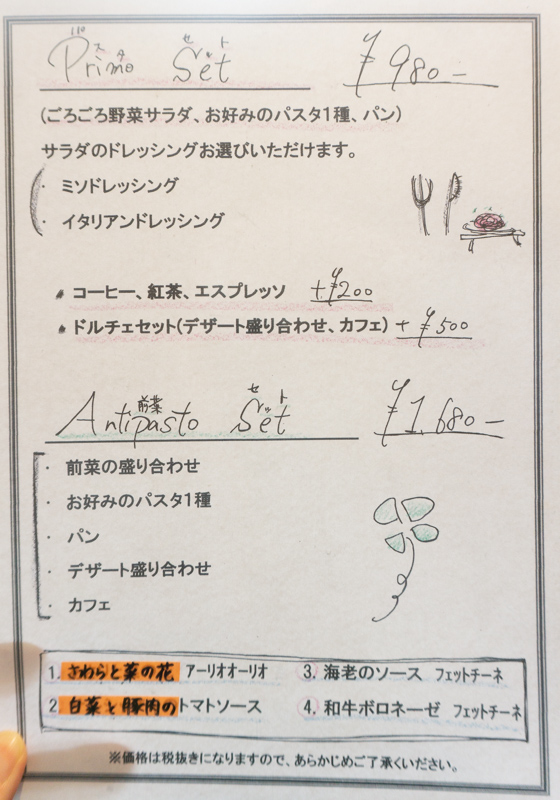 パスタ セット
Primo Set ¥980-
(ごろごろ野菜サラダ、お好みのパスタ1種、パン)
サラダのドレッシングお選びいただけます。
・ ミソドレッシング
・ イタリアンドレッシング
コーヒー、紅茶、エスプレッソ +¥200
ドルチェセット(デザート盛り合わせ、カフェ) +¥500
前菜 セット
Antipasto Set ¥1,680-
・ 前菜の盛り合わせ
・ お好みのパスタ1種
・ パン
・ デザート盛り合わせ
・ カフェ
1. さわらと菜の花 アーリオオーリオ 3. 海老のソース フェットチーネ
2 白菜と豚肉のトマトソース 4. 和牛ボロネーゼ フェットチーネ
※価格は税抜きになりますので、あらかじめご了承ください。